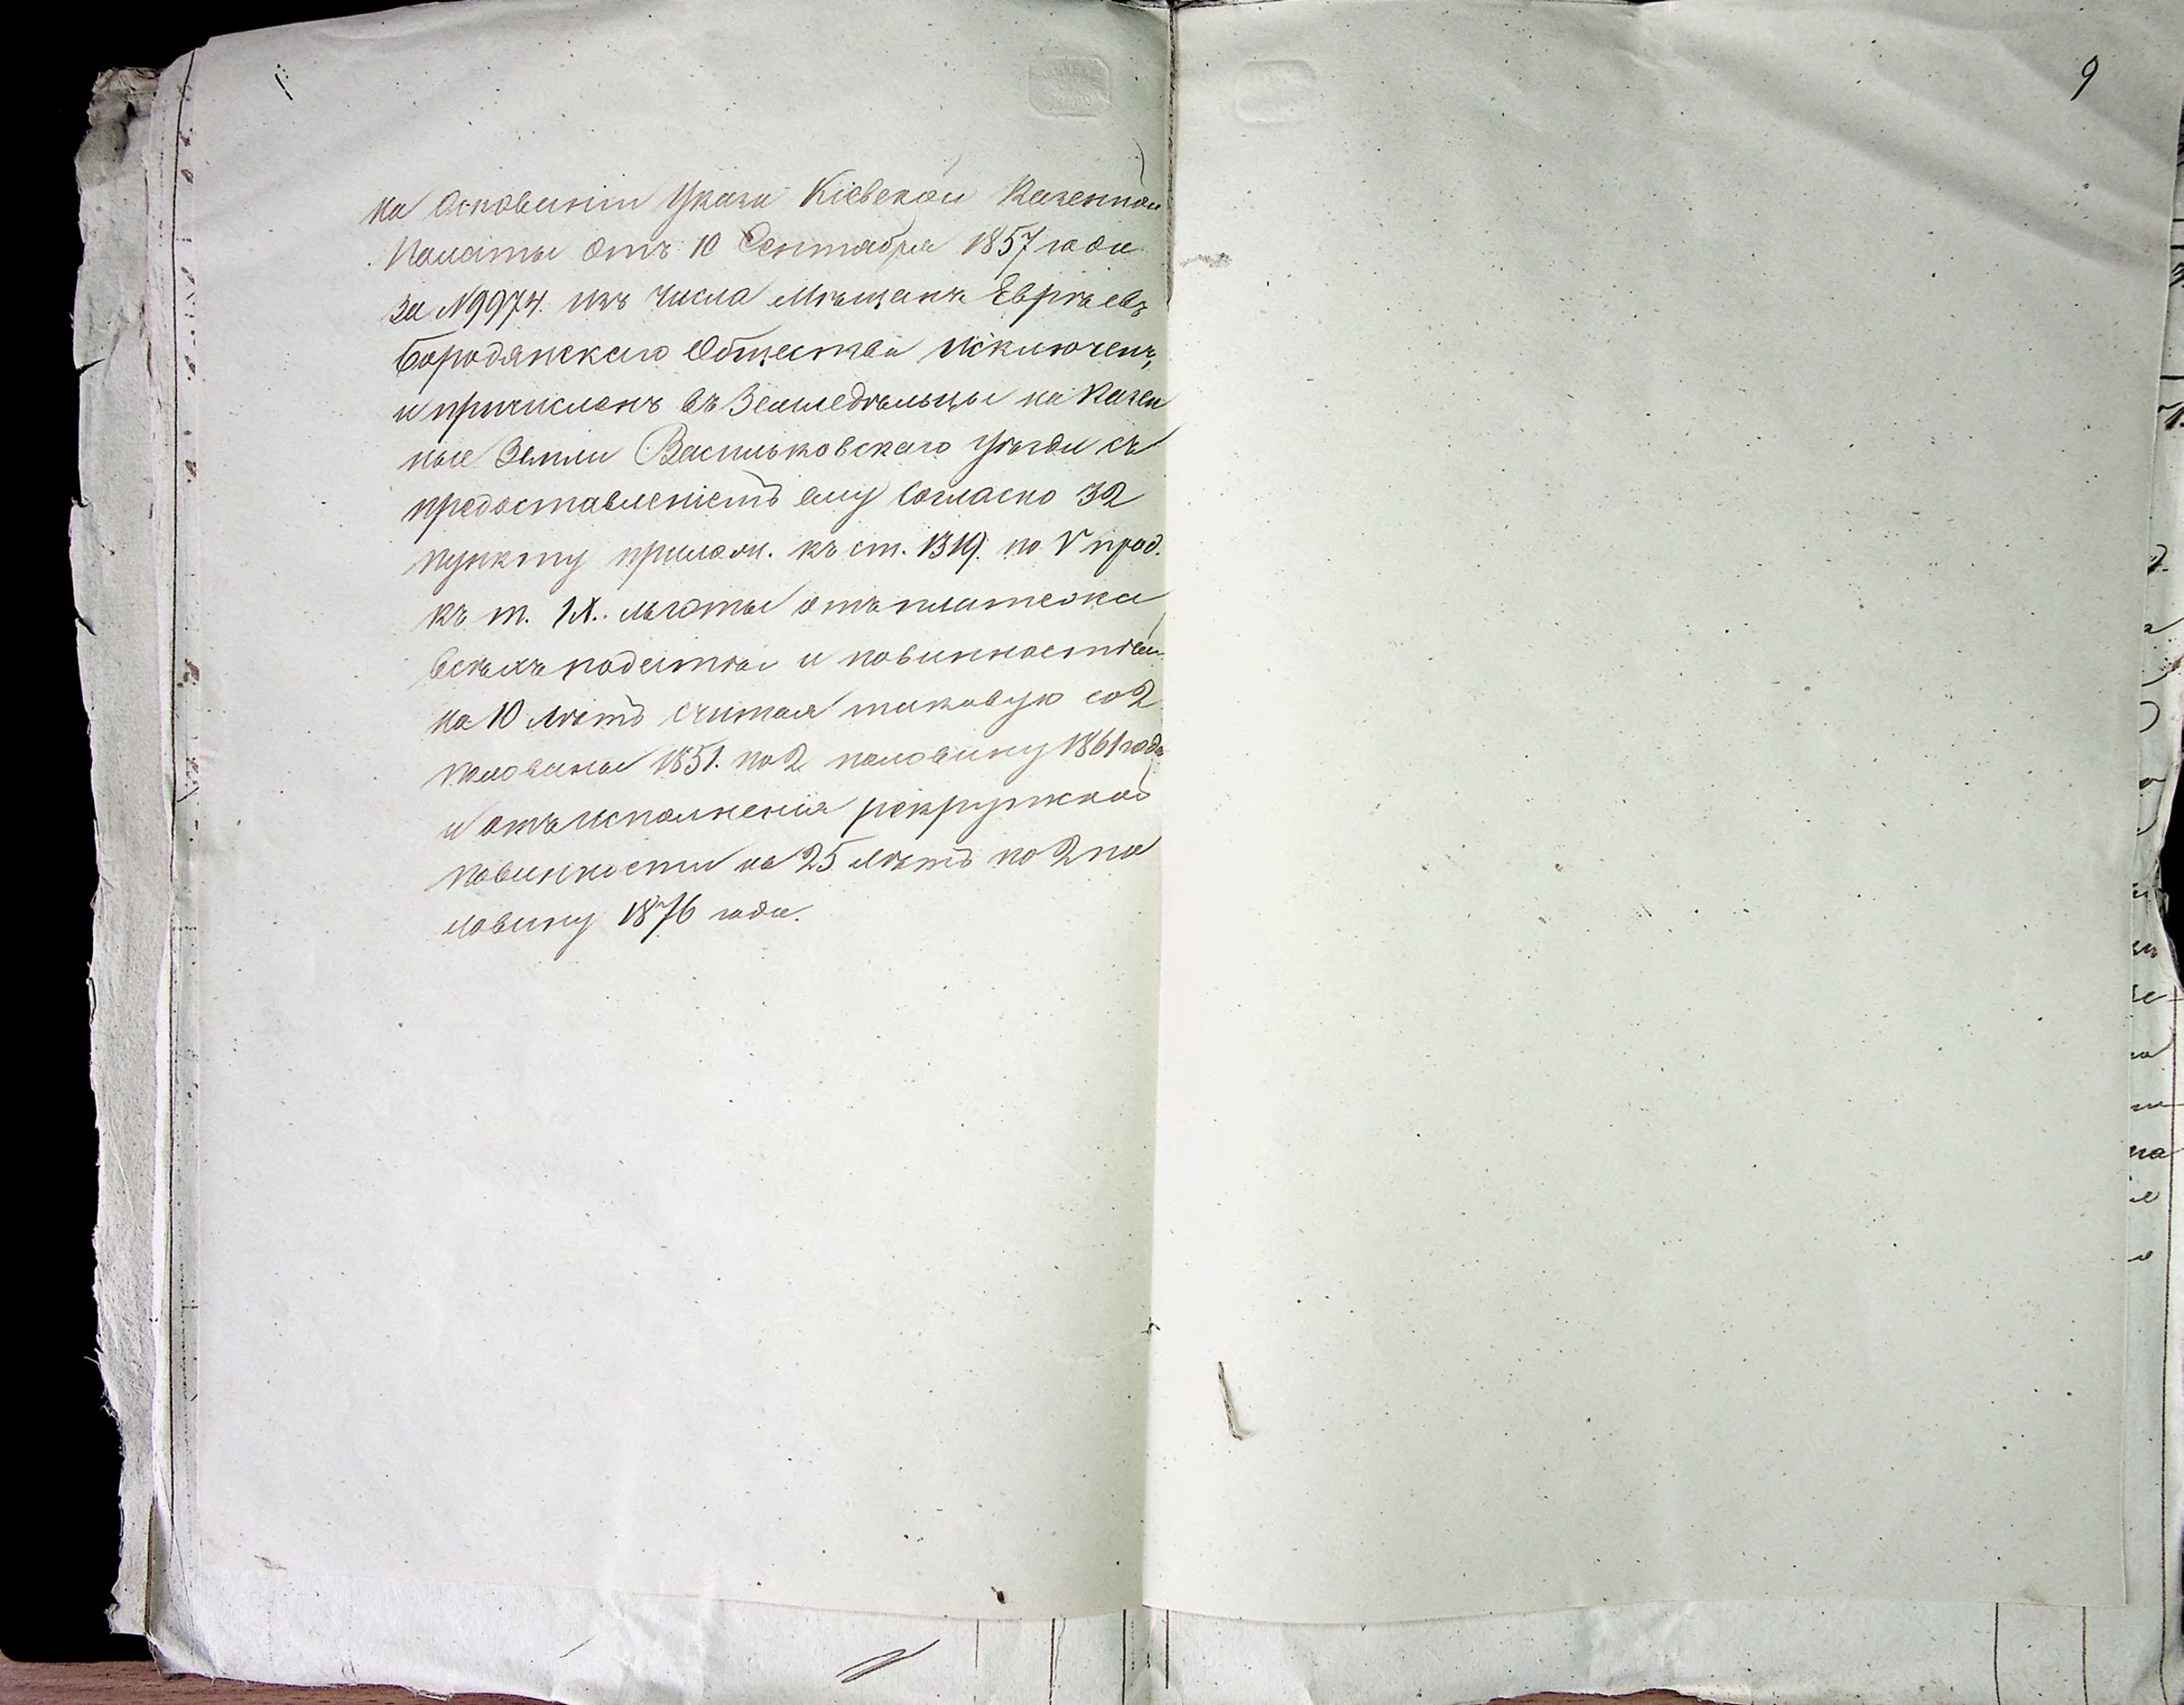 9
на основаніи Указа Кіевской Казенной
Палаты отъ 10 Сентября 1857 года
за №9974. изъ числа Мѣщанъ Евреевъ
Бородянскаго Общества исключенъ,
и причисленъ въ Земледѣльцы на Казен
ные Земли Васильковскаго уѣзда съ
предоставленіемъ ему согласно 32
пункту прилож. къ ст. 1319. по V прод.
къ т. IX. льготы отъ платежа
всѣхъ податей и повинностей
на 10 лѣтъ считая таковую со 2
половины 1851. по 2 половину 1861 года
и отъ исполненія рекрутской
повинности на 25 лѣтъ по 2 по
ловину 1876 года.